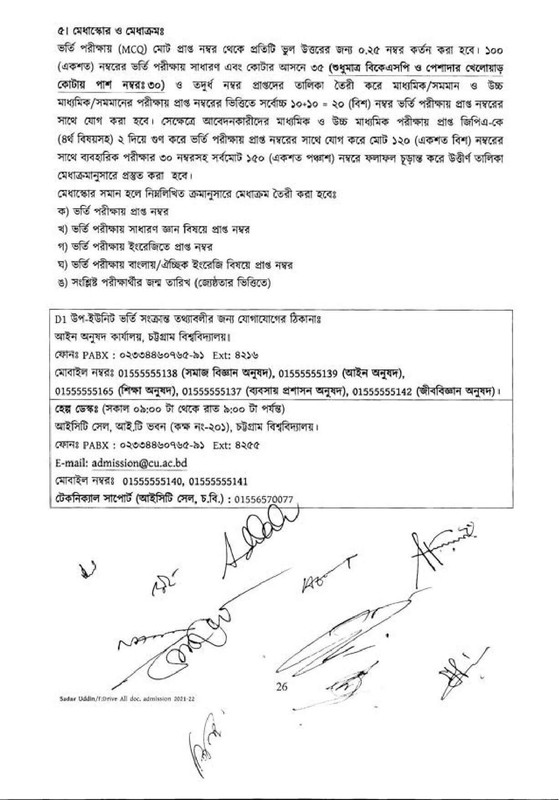 ৫। মেধাস্কোর ও মেধাক্রমঃ
ভর্তি পরীক্ষায় (MCQ) মোট প্রাপ্ত নম্বর থেকে প্রতিটি ভুল উত্তরের জন্য ০.২৫ নম্বর কর্তন করা হবে। ১০০
(একশত) নম্বরের ভর্তি পরীক্ষায় সাধারণ এবং কোটার আসনে ৩৫ (শুধুমাত্র বিকেএসপি ও পেশাদার খেলোয়াড়
কোটায় পাশ নম্বরঃ ৩০) ও তদুর্ধ নম্বর প্রাপ্তদের তালিকা তৈরী করে মাধ্যমিক/সমমান ও উচ্চ
মাধ্যমিক/সমমানের পরীক্ষায় প্রাপ্ত নম্বরের ভিত্তিতে সর্বোচ্চ ১০+১০ = ২০ (বিশ) নম্বর ভর্তি পরীক্ষায় প্রাপ্ত নম্বরের
সাথে যোগ করা হবে। সেক্ষেত্রে আবেদনকারীদের মাধ্যমিক ও উচ্চ মাধ্যমিক পরীক্ষায় প্রাপ্ত জিপিএ-কে
(৪র্থ বিষয়সহ) ২ দিয়ে গুণ করে ভর্তি পরীক্ষায় প্রাপ্ত নম্বরের সাথে যোগ করে মোট ১২০ (একশত বিশ) নম্বরের
সাথে ব্যবহারিক পরীক্ষার ৩০ নম্বরসহ সর্বমোট ১৫০ (একশত পঞ্চাশ) নম্বরে ফলাফল চূড়ান্ত করে উত্তীর্ণ তালিকা
মেধাক্রমানুসারে প্রস্তুত করা হবে।
মেধাস্কোর সমান হলে নিম্নলিখিত ক্রমানুসারে মেধাক্রম তৈরী করা হবেঃ
ক) ভর্তি পরীক্ষায় প্রাপ্ত নম্বর
খ) ভর্তি পরীক্ষায় সাধারণ জ্ঞান বিষয়ে প্রাপ্ত নম্বর
গ) ভর্তি পরীক্ষায় ইংরেজিতে প্রাপ্ত নম্বর
ঘ) ভর্তি পরীক্ষায় বাংলায়/ঐচ্ছিক ইংরেজি বিষয়ে প্রাপ্ত নম্বর
ঙ) সংশ্লিষ্ট পরীক্ষার্থীর জন্ম তারিখ (জ্যেষ্ঠতার ভিত্তিতে)
D1 উপ-ইউনিট ভর্তি সংক্রান্ত তথ্যাবলীর জন্য যোগাযোগের ঠিকানাঃ
আইন অনুষদ কার্যালয়, চট্টগ্রাম বিশ্ববিদ্যালয়।
ফোনঃ PABX : ০২৩৩৪৪৬০৭৬৫-৯১ Ext: ৪২১৬
মোবাইল নম্বরঃ 01555555138 (সমাজ বিজ্ঞান অনুষদ), 01555555139 (আইন অনুষদ),
01555555165 (শিক্ষা অনুষদ), 01555555137 (ব্যবসায় প্রশাসন অনুষদ), 01555555142 (জীববিজ্ঞান অনুষদ)।
হেল্প ডেস্কঃ (সকাল ০৯:০০ টা থেকে রাত ৯:০০ টা পর্যন্ত)
আইসিটি সেল, আই.টি ভবন (কক্ষ নং-২০১), চট্টগ্রাম বিশ্ববিদ্যালয়।
ফোনঃ PABX : ০২৩৩৪৪৬০৭৬৫-৯১ Ext: ৪২৫৫
E-mail: admission@cu.ac.bd
মোবাইল নম্বরঃ 01555555140, 01555555141
টেকনিক্যাল সাপোর্ট (আইসিটি সেল, চ.বি.) : 01556570077
26
Sadar Uddin/F:Drive All doc. admission 2021-22